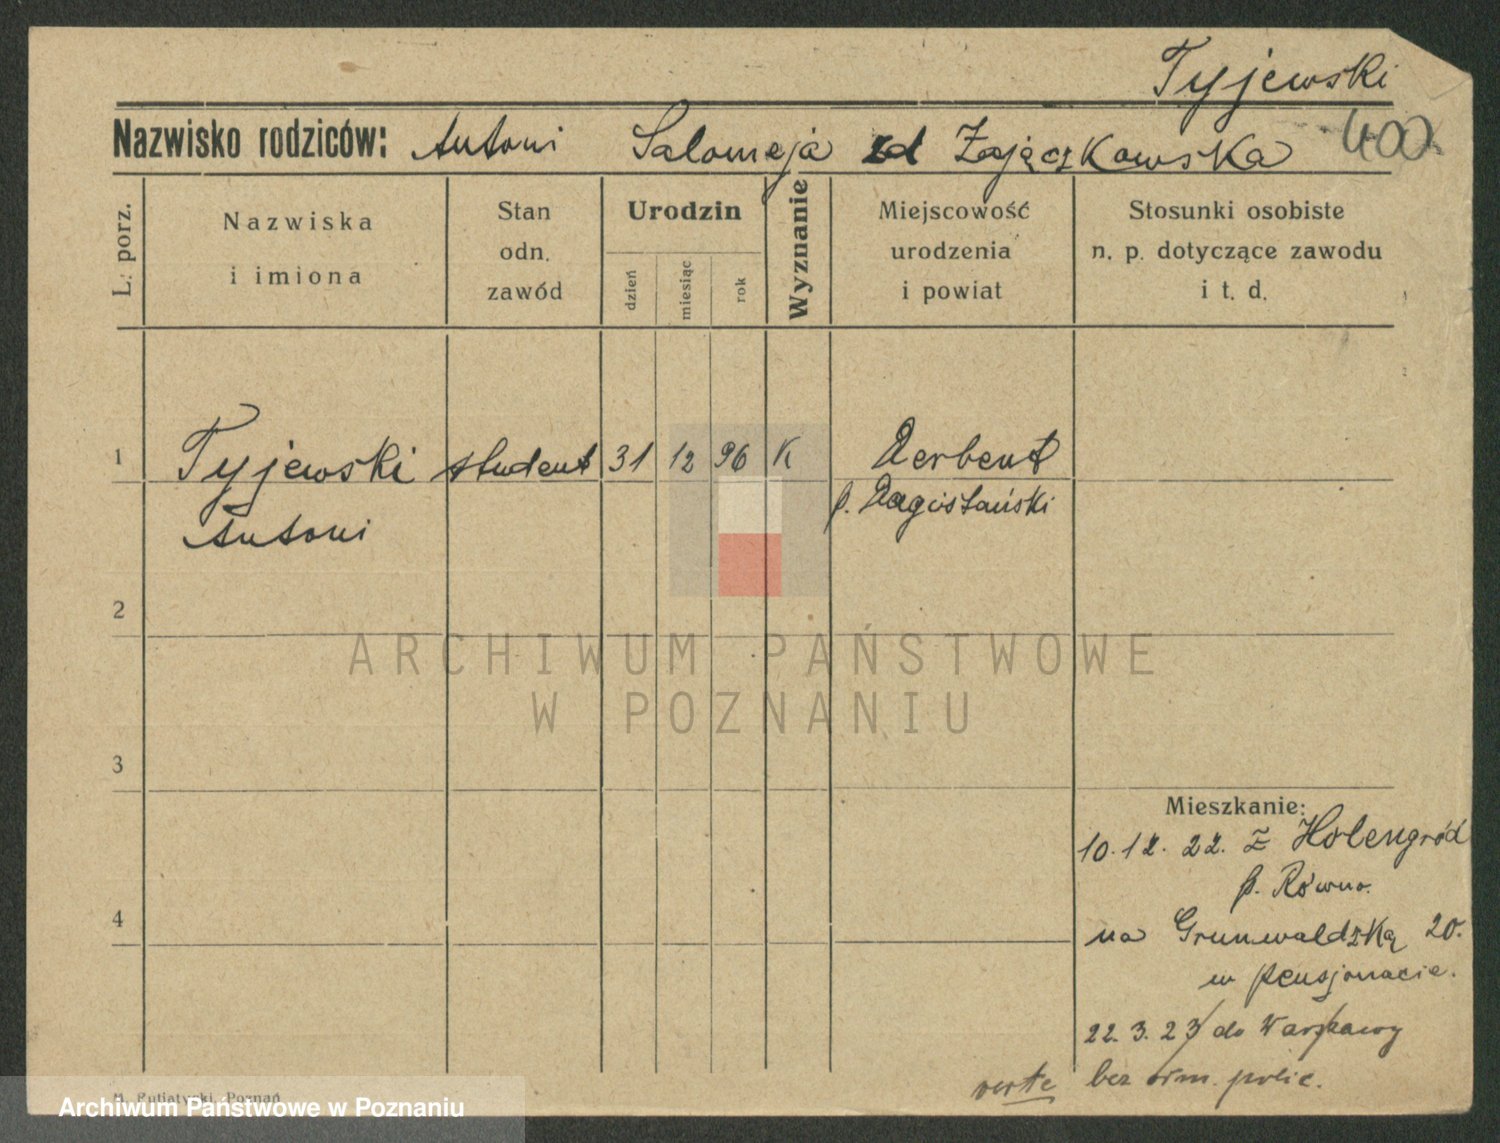 Tyjewski
Nazwisko rodziców: Antoni Salomeja zd Zajączkowska 400
L. porz.
Nazwiska
i imiona
Stan
odn.
zawód
Urodzin
dzień
miesiąc
rok
Wyznanie
Miejscowość
urodzenia
i powiat
Stosunki osobiste
n. p. dotyczące zawodu
i t. d.
1 Tyjewski student 31 12 96 K Derbent
Antoni p. Dagistański
2
3
4
Mieszkanie:
10.12.22. z Holengród
p. Równo.
na Grunwaldzką 20.
w pensjonacie.
22.3.23 do Warszawy
bez polic.
verte
Putiatycki, Poznań
ARCHIWUM PAŃSTWOWE
W POZNANIU
Archiwum Państwowe w Poznaniu